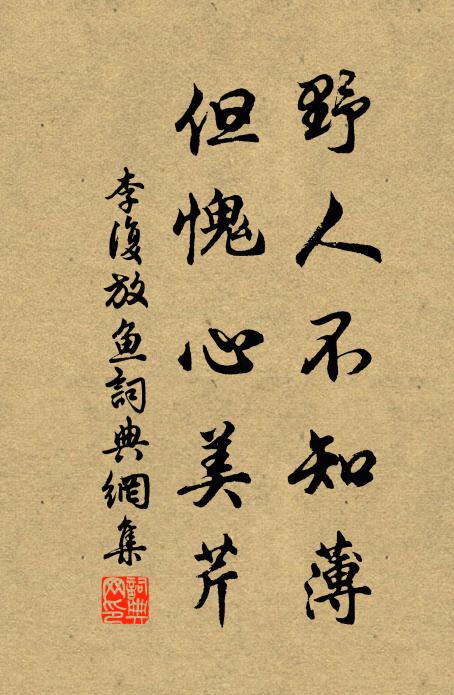 野人不知薄
但愧心美芹
李復放魚詞典網集